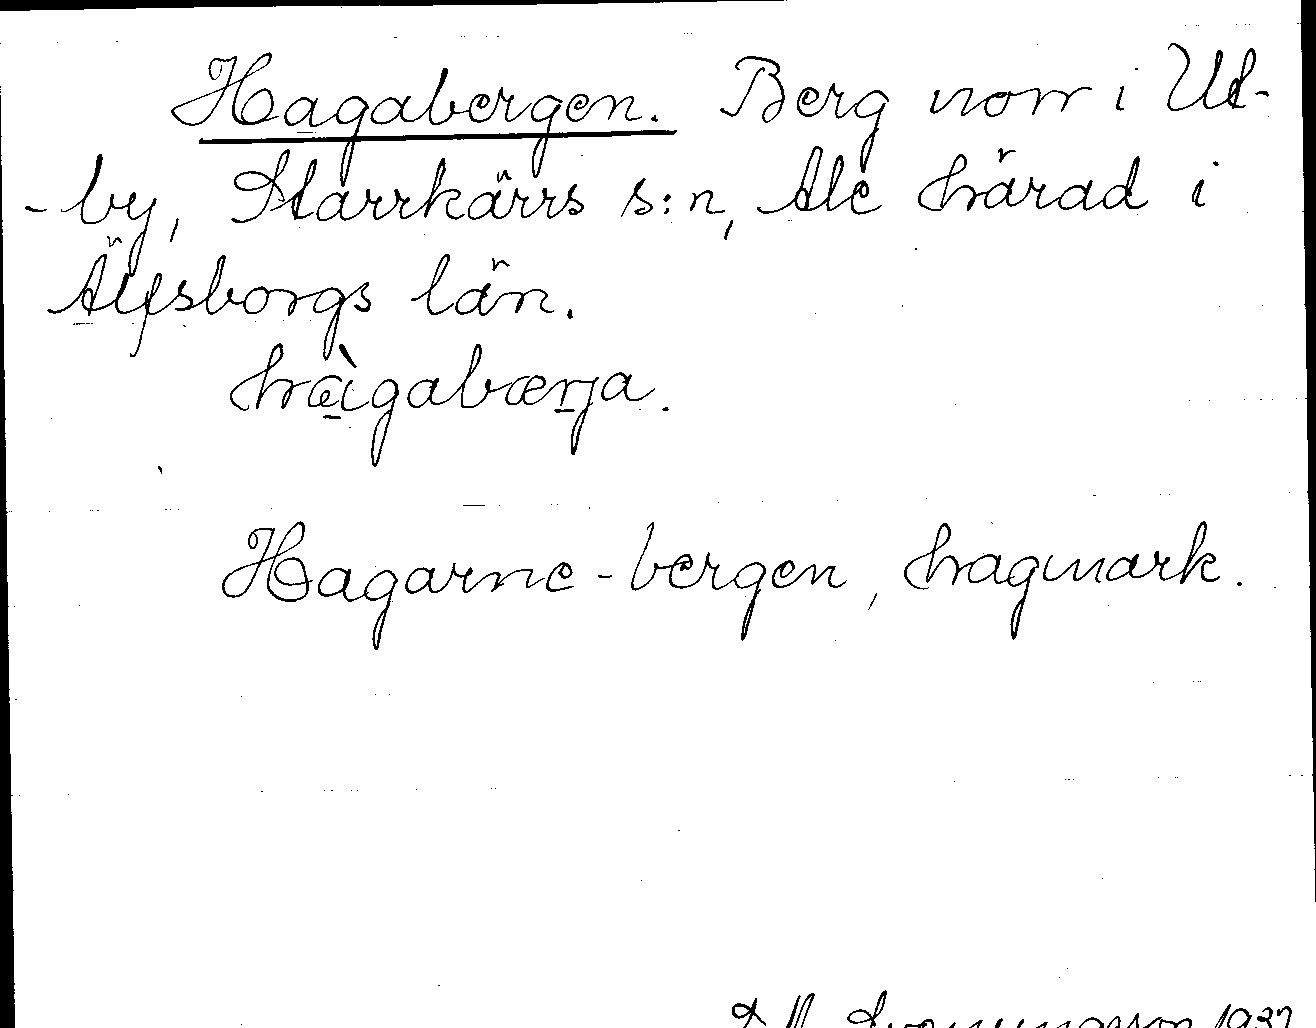 Hagabergen. Berg norr i Ut-
-by, Starrkärrs s:n, Ale härad i
Älfsborgs län.
hàgabærja.
Hagarne-bergen, hagmark.
1937